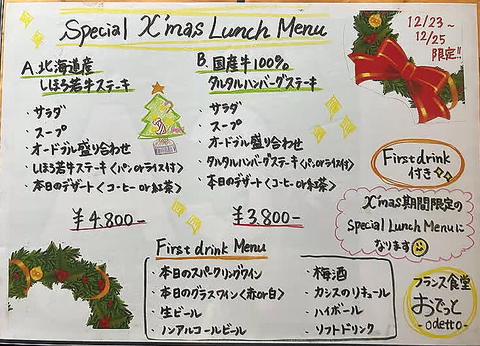 Special X'mas Lunch Menu
12/23~
12/25
限定!!
A. 北海道産
しほろ若牛ステーキ
・サラダ
・スープ
・オードブル盛り合わせ
・しほろ若牛ステーキ〈パンorライス付〉
・本日のデザート〈コーヒーor紅茶〉
¥4.800-
B. 国産牛100%
タルタルハンバーグステーキ
・サラダ
・スープ
・オードブル盛り合わせ
・タルタルハンバーグステーキ〈パンorライス付〉
・本日のデザート〈コーヒーor紅茶〉
¥3.800-
First drink
付き
X'mas期間限定の
Special Lunch Menuに
なります
First drink Menu
・本日のスパークリングワイン
・本日のグラスワイン〈赤or白〉
・生ビール
・ノンアルコールビール
・梅酒
・カシスのリキュール
・ハイボール
・ソフトドリンク
フランス食堂
おでっと
-odetto-